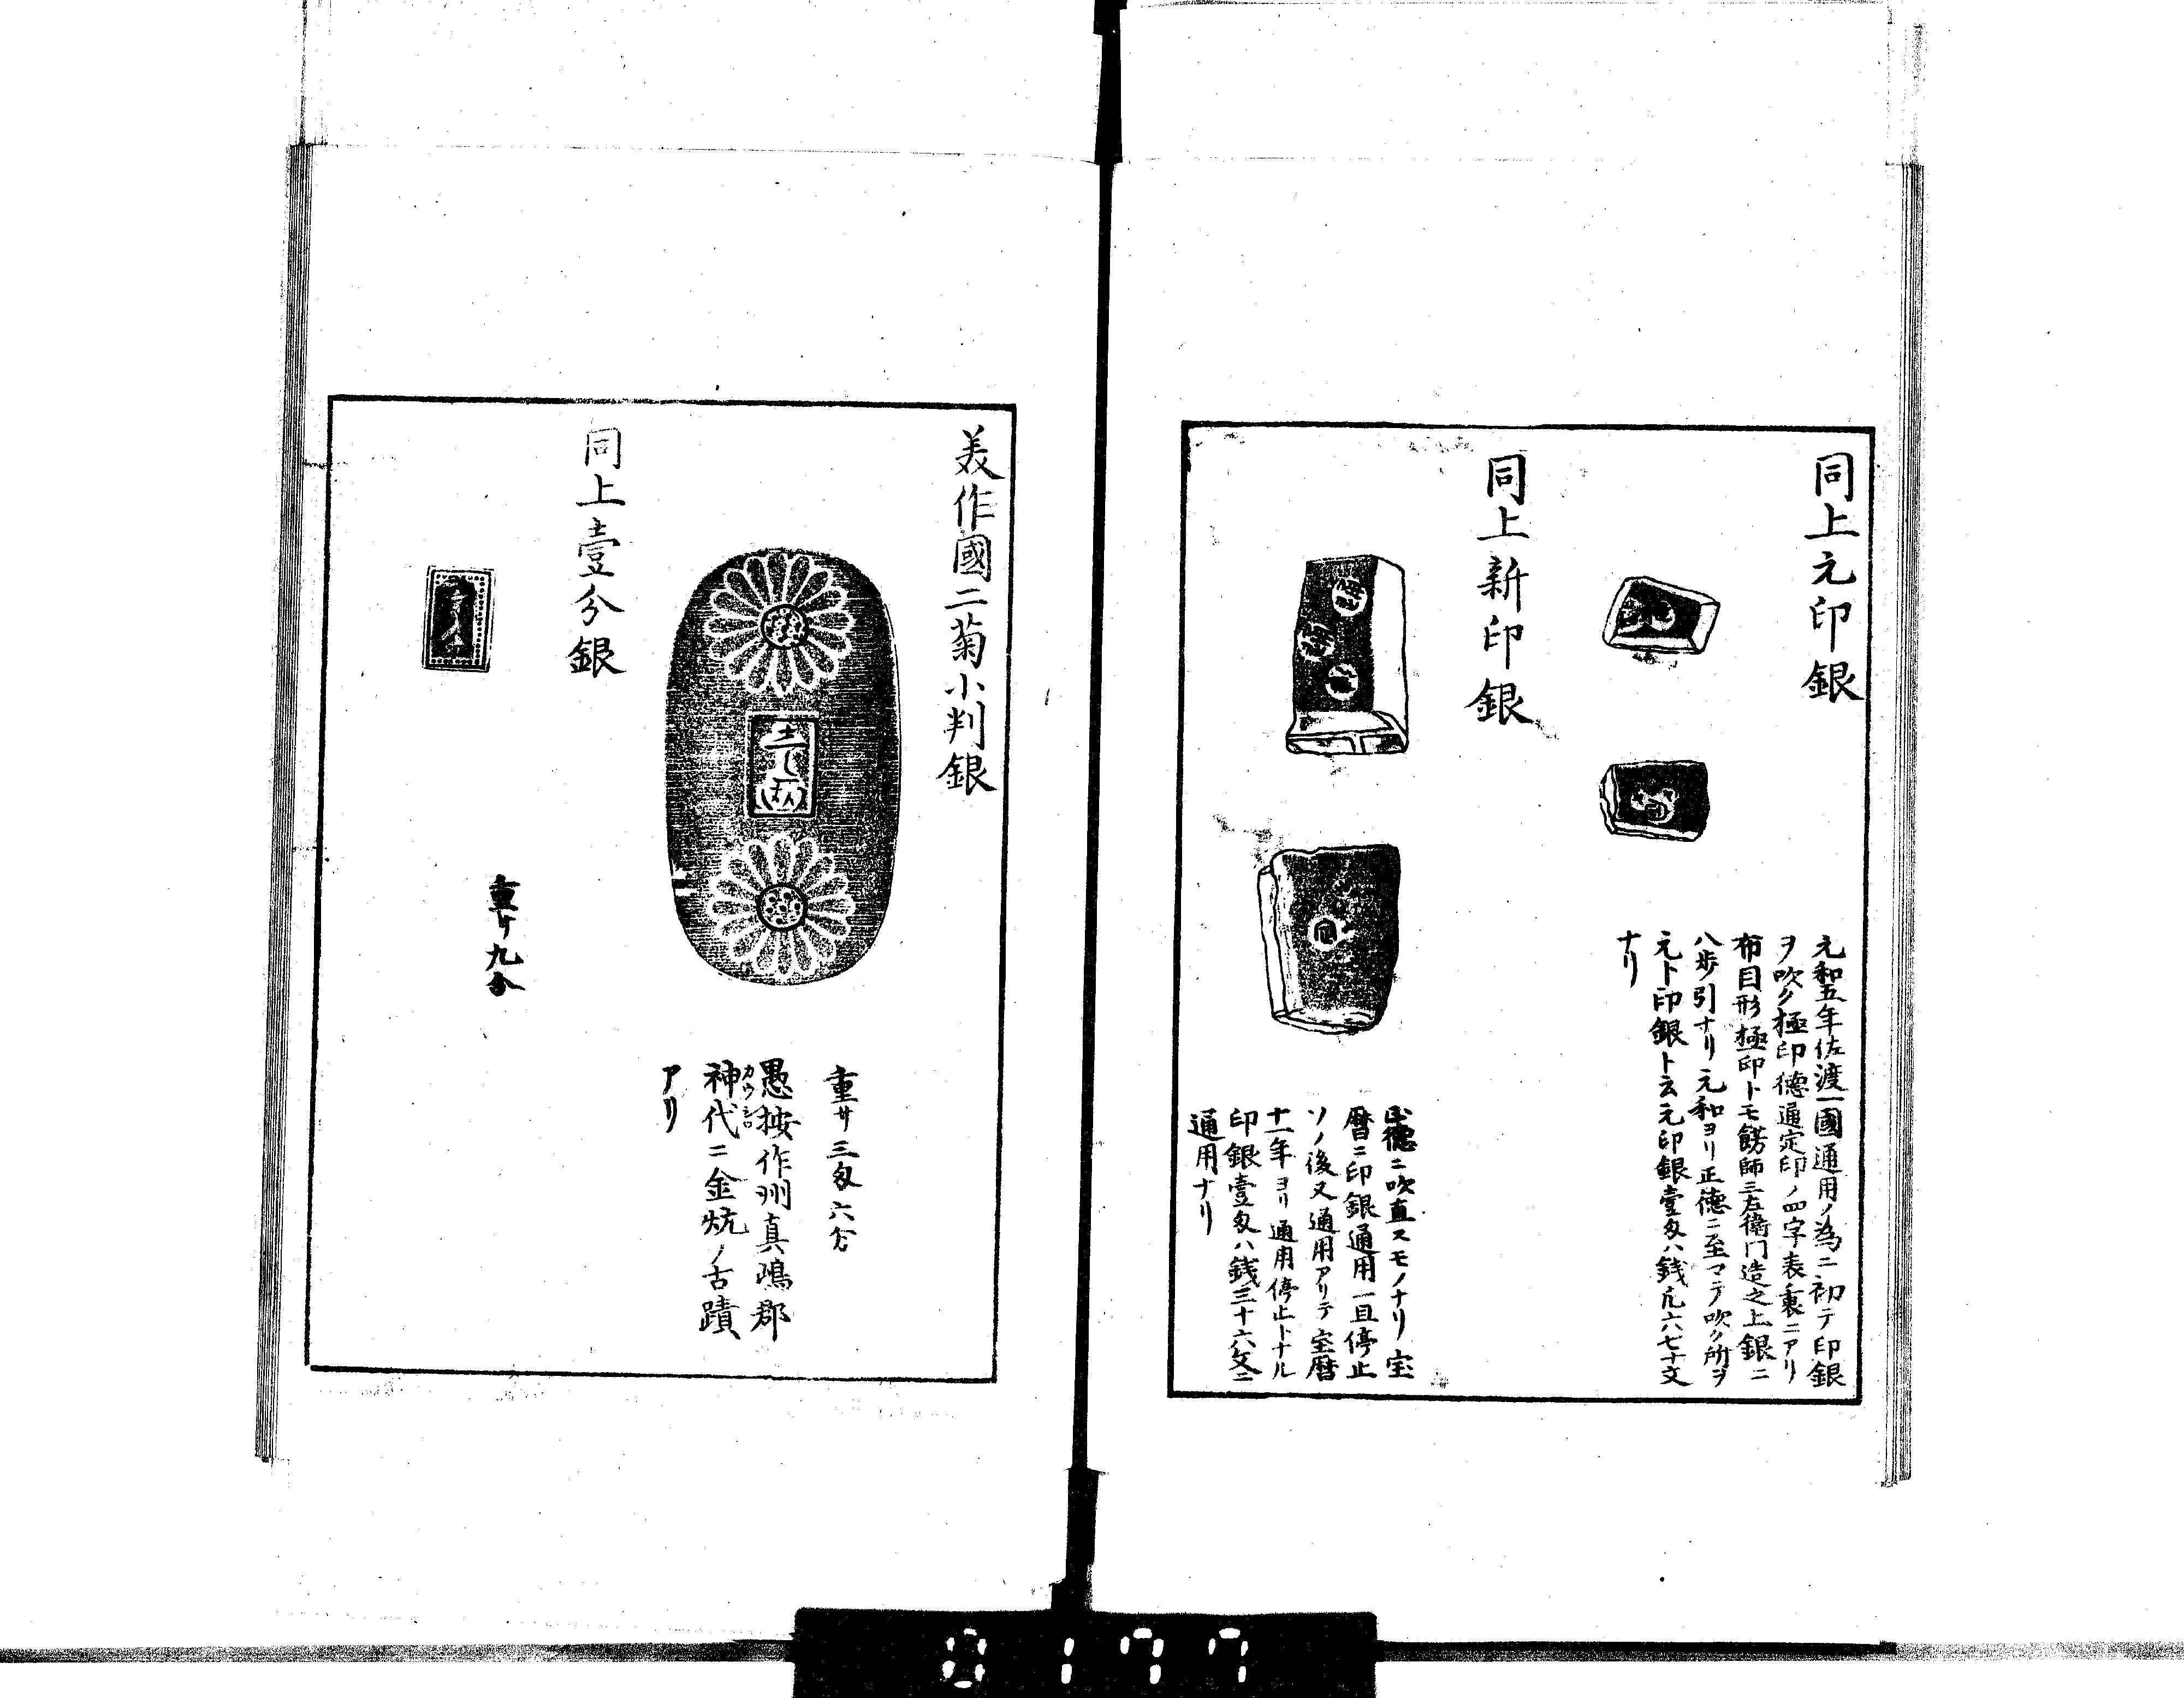 同上元印銀
元和五年佐渡一國通用ノ為ニ初テ印銀
ヲ吹ク極印德通定印ノ四字表裏ニアリ
布目形極印トモ餝師三左衛門造之上銀ニ
八歩引ナリ元和ヨリ正德ニ至マテ吹ク所ヲ
元ト印銀ト云元印銀壹匁ハ銭凡六七十文
ナリ
同上新印銀
正德ニ吹直スモノナリ宝
暦ニ印銀通用一旦停止
ソノ後又通用アリテ宝暦
十一年ヨリ通用停止トナル
印銀壹匁ハ銭三十六文ニ
通用ナリ
美作國二菊小判銀
重サ三匁六分
愚按作州真嶋郡
神代ニ金炕ノ古蹟
アリ
同上壹分銀
重サ九分
0177